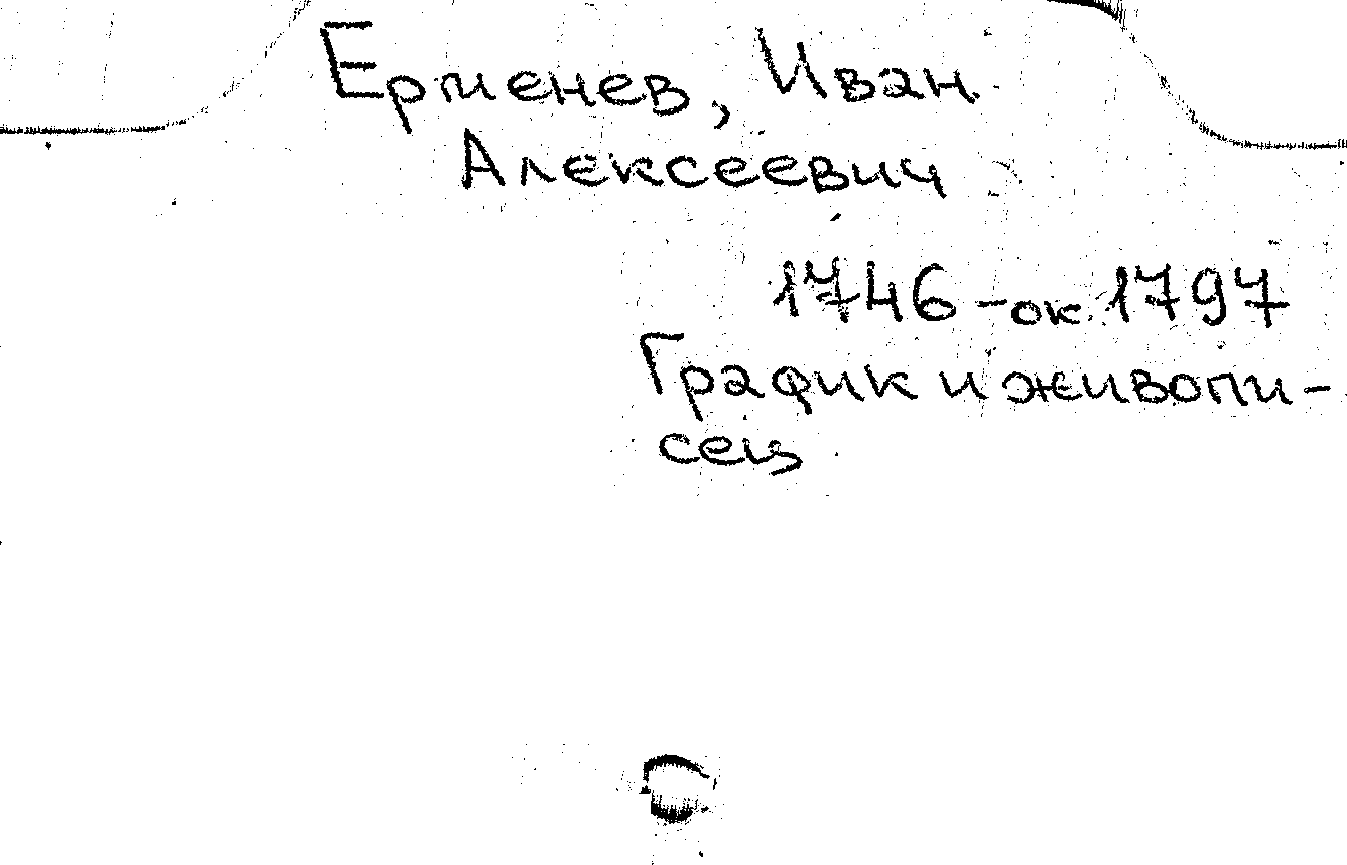 Ерменев, Иван
Алексеевич
1746 - ок. 1797
График и живопи-
сец